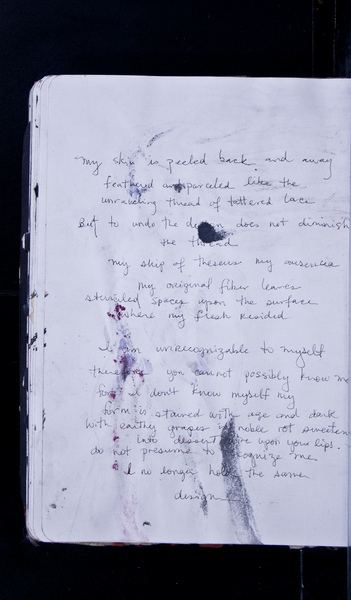 my skin is peeled back and away
feathered unparceled like the
unraveling thread of tattered lace
But to undo the design does not diminish
the thread
my ship of theseus my ousia
my original fiber leaves
stenciled spaces upon the surface
where my flesh resided
I am unrecognizable to myself
therefore you cannot possibly know me
for I don't know myself my
form is stained with age and dark
with earthy grapes noble rot sweetens
into dessert upon your lips.
do not presume to recognize me
I no longer hold the same
design